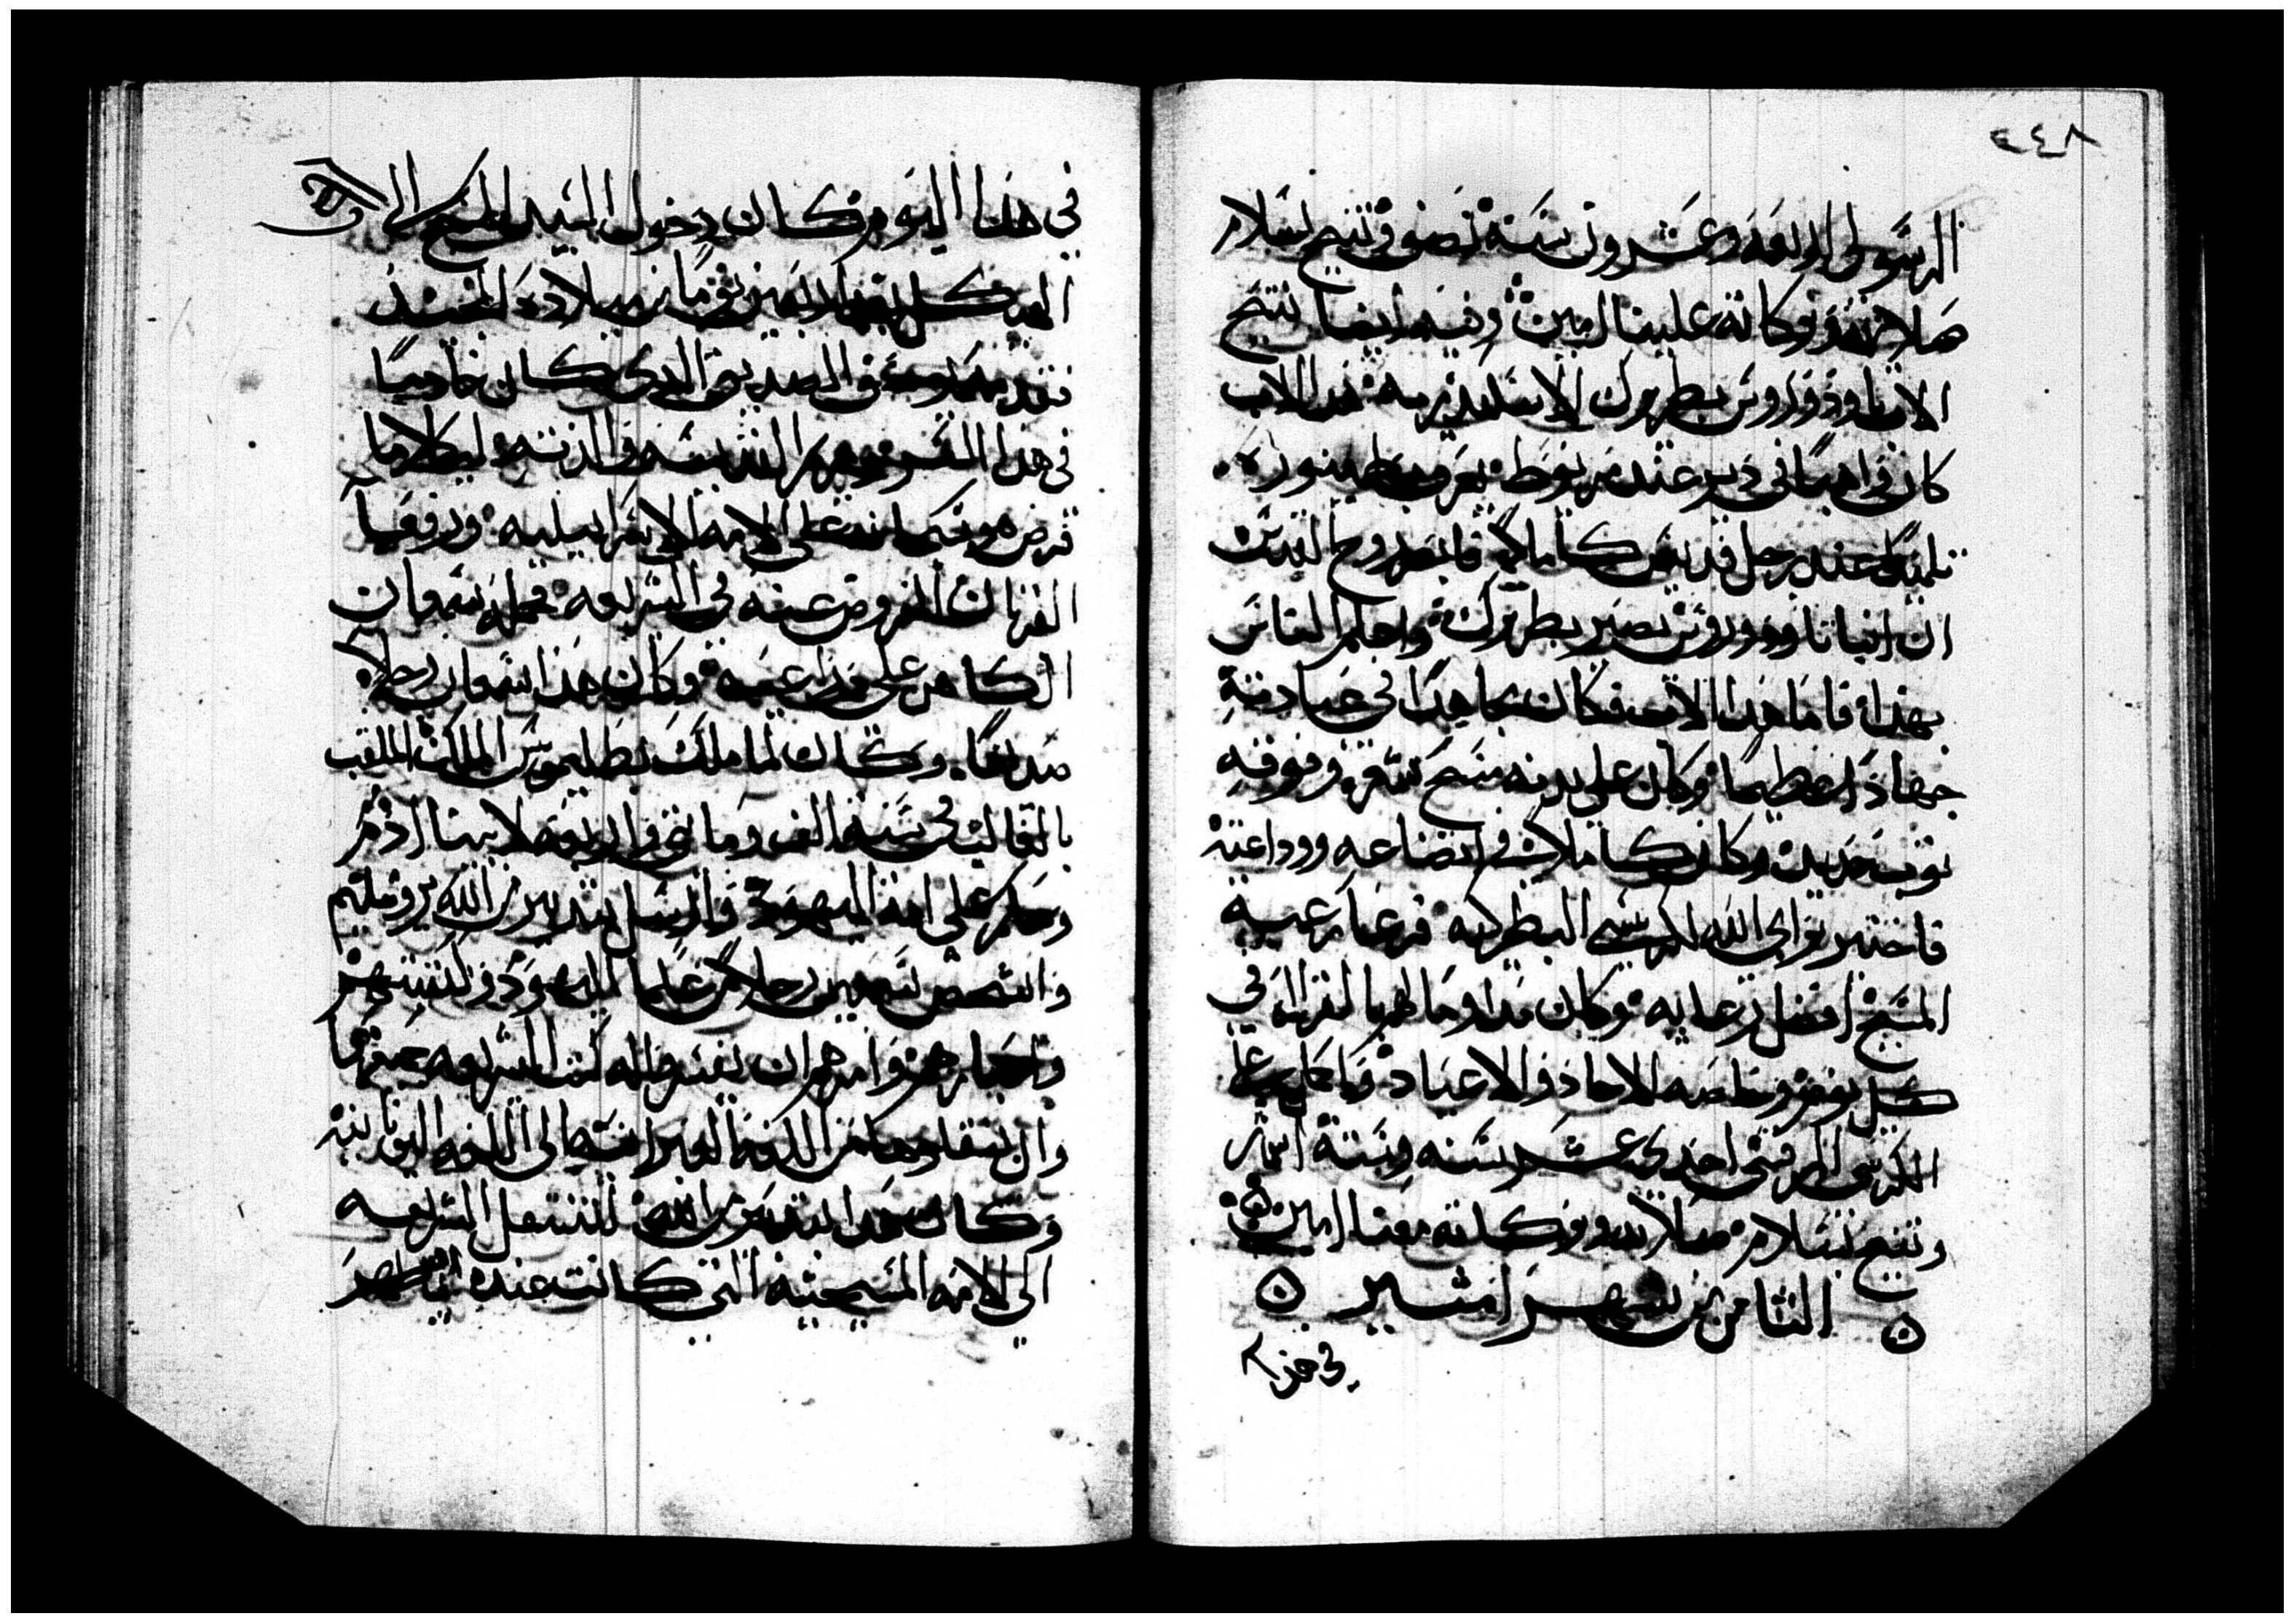 ٢٤٨
الرسولى اربعه وعشرون سنة نصف وتنيح بسلام
صلاته وبركاته علينا امين وفيه ايضا تنيح
الاب تاودوروس بطريرك الاسكندريه هدا الاب
كان راهبا في دير عند مريوط يعرف بطمنوره
تلميدا عند رجل قديس كاملا فابصر بروح القدس
ان انبا تاودوروس يصير بطريرك واعلم الناس
بهذا فاما هدا الاب فكان مجاهدا في عبادته
جهادا عظيما وكان على بدنه مسح شعر وفوقه
ثوب حديد وكان كاملا في اتضاعه ووداعته
فاختير من الله لكرسي البطركيه فرعا رعية
المسيح افضل رعايه وكان مداوما لهم بالقراه في
كل يوم وخاصه الاحاد والاعياد واكمل على
الكرسي المرقسي احدى عشر سنه وسته اشهر
وتنيح بسلام صلاته وبركاته معنا امين
الثامن من شهر امشير
في هذا
في هذا اليوم كان دخول السيد المسيح الى
الهيكل بعد اربعين يوما من ميلاده المجيد
فقدمه يوسف الصديق الدي كان خادما
في هذا السر ومريم القديسه والدته ليكملا ما
فرض هو في كتابه على الامه الاسراييليه ورفعا
القربان المفروض عنه في الشريعه فحمله سمعان
الكاهن على ذراعيه وكان هذا سمعان رجلا
صديقا وكان لما ملك بطليموس الملك الملقب
بالغالب في سنة الف وماتي واربعه لابينا ادم
وحكم على امة اليهود وارسل بتدبير من الله يروشليم
واشخص سبعين رجلا من علما اليهود وكتبتهم
واحبارهم وامرهم ان يفسروا له كتب الشريعه جميعها
وان ينقلوها من اللغه العبرانيه الى اللغه اليونانيه
وكان هدا بتدبير من الله لتنتقل الشريعه
الي الامه المسيحيه التي كانت عنده